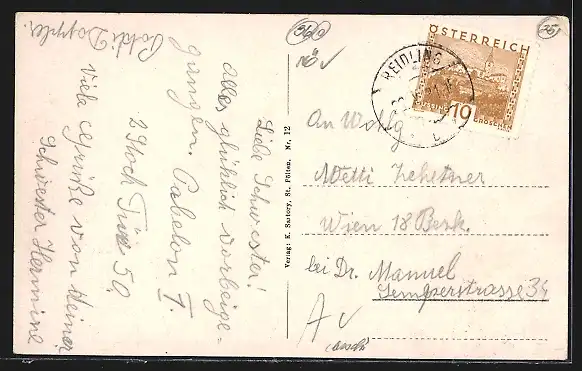 Liebe Schwester!
Alles glücklich vorbeige-
gangen. Pabelon 7.
2 Stock Türe 50.
Viele Grüße von deiner
Schwester Hermine
Poldi Doppler.
Verlag: K. Sartory, St. Pölten. Nr. 12
ÖSTERREICH
10
GROSCHEN
REIDLING
An Wohlg
Netti Zehetner
Wien 18 Bezk.
bei Dr. Manuel
Semperstrasse 34
360
NÖ
35
A